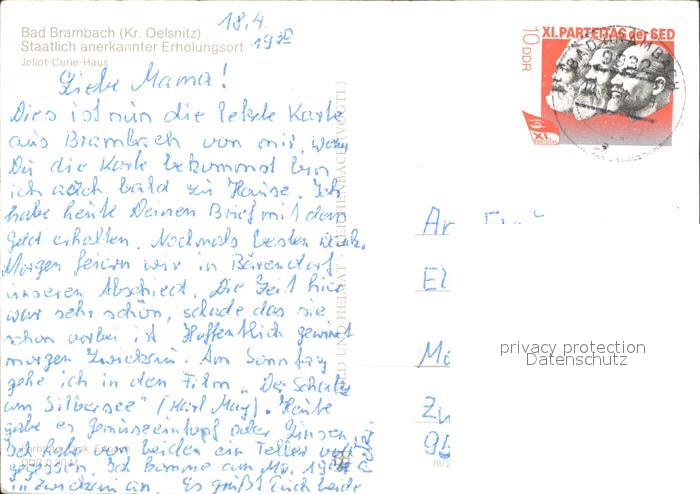 Bad Brambach (Kr. Oelsnitz)
Staatlich anerkannter Erholungsort
Joliot-Curie-Haus
18.4.
XI. PARTEITAG der SED
10
DDR
XI.
PARTEITAG
BAD BRAMBACH
9932
Liebe Mama!
Dies ist nun die letzte Karte
aus Brambach von mir, wenn
Du die Karte bekommst bin
ich auch bald zu Hause. Ich
habe heute Deinen Brief mit dem
Geld erhalten. Nochmals besten Dank.
Morgen feiern wir in Bärendorf
unseren Abschied. Die Zeit hier
war sehr schön, schade das sie
schon vorbei ist. Hoffentlich gewinnt
morgen Zwickau. Am Sonntag
gehe ich in den Film "Der Schatz
am Silbersee" (Karl May). Heute
gabe es Gemüseeintopf oder Linsen.
Ich habe von beiden ein Teller voll
gegessen. Ich komme am
in Zwickau an. Es grüßt Euch beide
BILD UND HEIMAT REICHENBACH (VOGTL)
An
El
Mo
Zw
95
III/2
privacy protection
Datenschutz